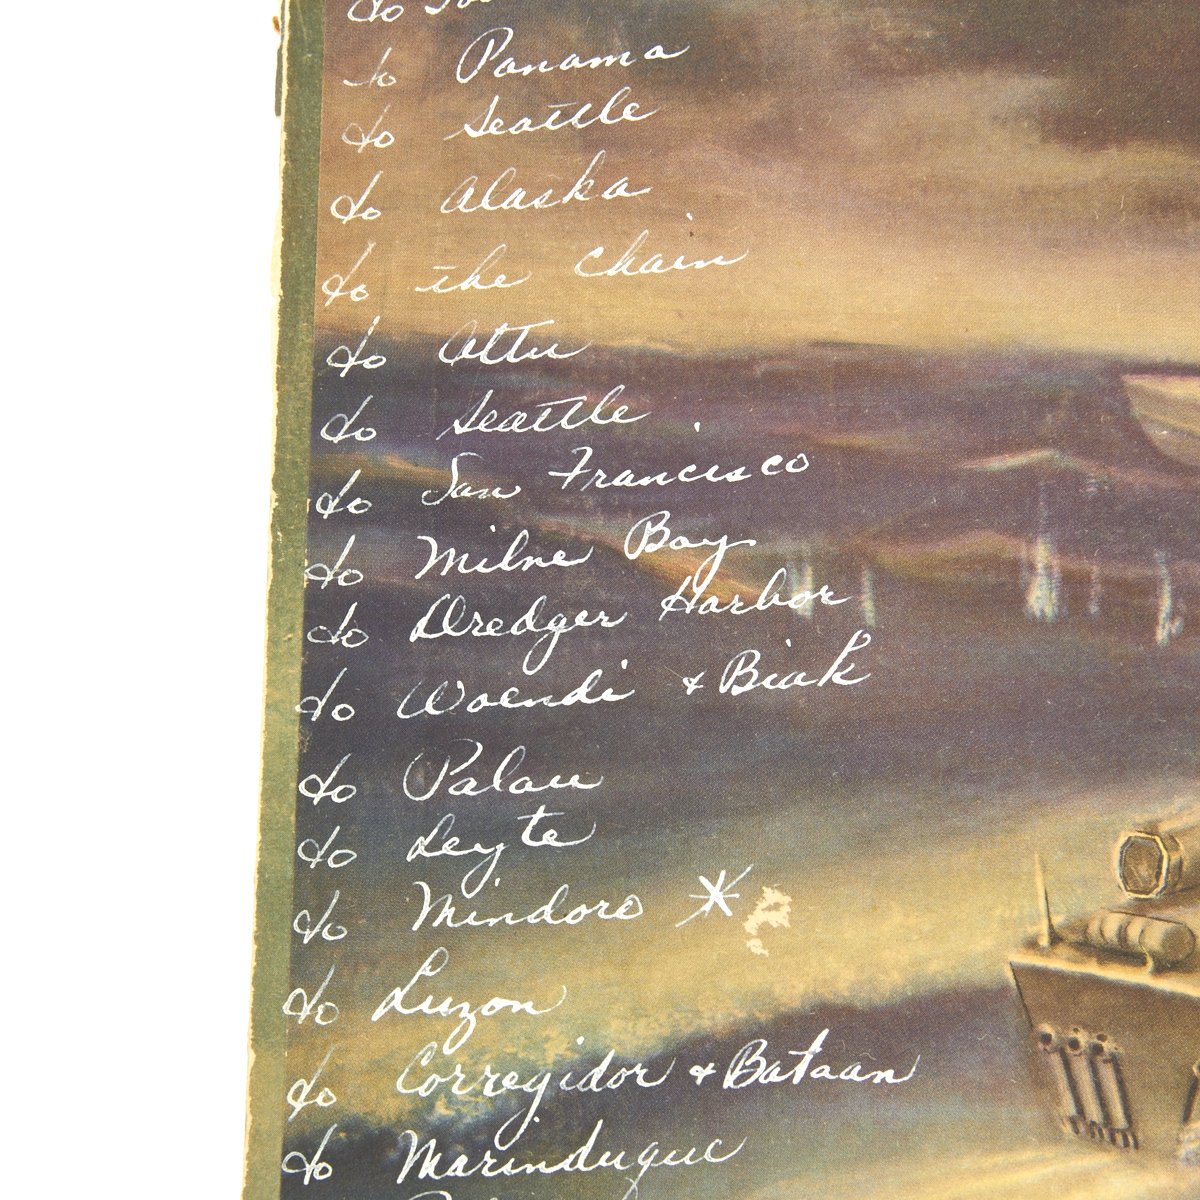 to
to Panama
to Seattle
to Alaska
to the Chain
to Attu
to Seattle
to San Francisco
to Milne Bay
to Dredger Harbor
to Woendi + Biak
to Palau
to Leyte
to Mindoro *
to Luzon
to Corregidor + Bataan
to Marinduque